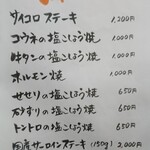 サイコロステーキ 1,200円
コウネの塩こしょう焼 1,000円
牛タンの塩こしょう焼 1,000円
ホルモン焼 1,000円
せせりの塩こしょう焼 650円
砂ずりの塩こしょう焼 650円
トントロの塩こしょう焼 650円
国産サーロインステーキ(150g) 2,000円